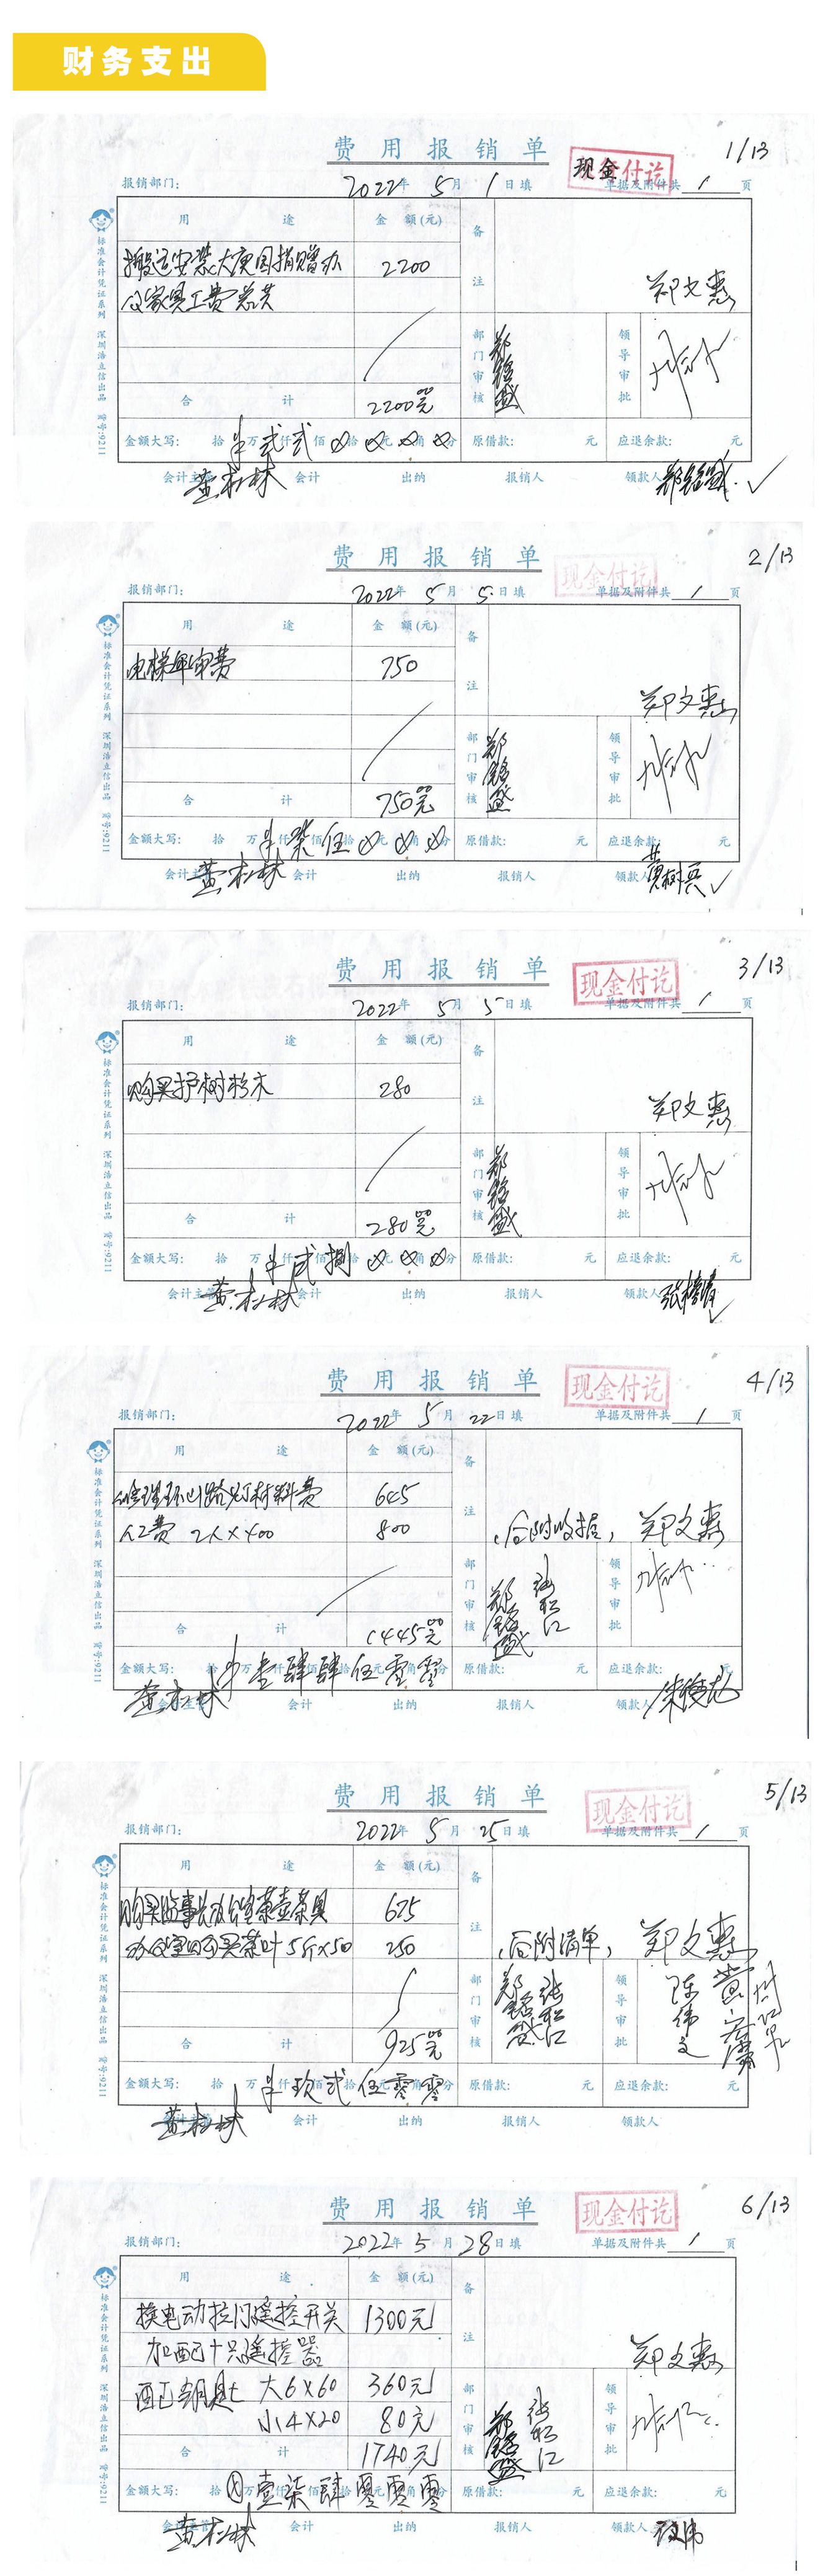 财务支出
费用报销单
现金付讫
1/13
报销部门:
2022年 5月 1日填
单据及附件共 1 页
用途 金额(元) 备注
搬运安装大庚园捐赠办 2200
公家具工费总共
郑文惠
部门审核 郑铭盛 领导审批
合计 2200元
金额大写: 拾万仟佰拾元角分 贰贰 原借款: 元 应退余款: 元
会计主管 会计 出纳 报销人 领款人 郑铭盛
标准会计凭证系列 深圳浩立信出品 货号:9211
费用报销单
现金付讫
2/13
报销部门:
2022年 5月 5日填
单据及附件共 1 页
用途 金额(元) 备注
电梯年审费 750
郑文惠
部门审核 郑铭盛 领导审批
合计 750元
金额大写: 拾万仟佰拾元角分 柒伍 原借款: 元 应退余款:
会计主管 会计 出纳 报销人 领款人 黄树兵
标准会计凭证系列 深圳浩立信出品 货号:9211
费用报销单
现金付讫
3/13
报销部门:
2022年 5月 5日填
单据及附件共 1 页
用途 金额(元) 备注
购买护树杉木 280
郑文惠
部门审核 郑铭盛 领导审批
合计 280元
金额大写: 拾万仟佰拾元角分 贰捌 原借款: 元 应退余款: 元
会计主管 会计 出纳 报销人 领款人
标准会计凭证系列 深圳浩立信出品 货号:9211
费用报销单
现金付讫
4/13
报销部门:
2022年 5月 22日填
单据及附件共 1 页
用途 金额(元) 备注
修理环山路灯材料费 645
人工费 2人×400 800
后附收据, 郑文惠
部门审核 郑铭盛 张松江 领导审批
合计 1445元
金额大写: 拾万仟佰拾元角分 壹肆肆伍零零 原借款: 元 应退余款: 元
会计主管 会计 出纳 报销人 领款人
标准会计凭证系列 深圳浩立信出品 货号:9211
费用报销单
现金付讫
5/13
报销部门:
2022年 5月 25日填
单据及附件共 1 页
用途 金额(元) 备注
购买监事长办公室茶壶茶具 675
办公室购买茶叶 5斤×50 250
后附清单, 郑文惠
部门审核 郑铭盛 张松江 领导审批 陈伟文
合计 925元
金额大写: 拾万仟佰拾元角分 玖贰伍零零 原借款: 元 应退余款: 元
会计主管 会计 出纳 报销人 领款人
标准会计凭证系列 深圳浩立信出品 货号:9211
费用报销单
现金付讫
6/13
报销部门:
2022年 5月 28日填
单据及附件共 1 页
用途 金额(元) 备注
换电动拉门遥控开关 1300元
加配十只遥控器
郑文惠
配钥匙 大6×60 360元
小4×20 80元
部门审核 郑铭盛 张松江 领导审批
合计 1740元
金额大写: 拾万仟佰拾元角分 壹柒肆零零零 原借款: 元 应退余款: 元
会计主管 会计 出纳 报销人 领款人
标准会计凭证系列 深圳浩立信出品 货号:9211